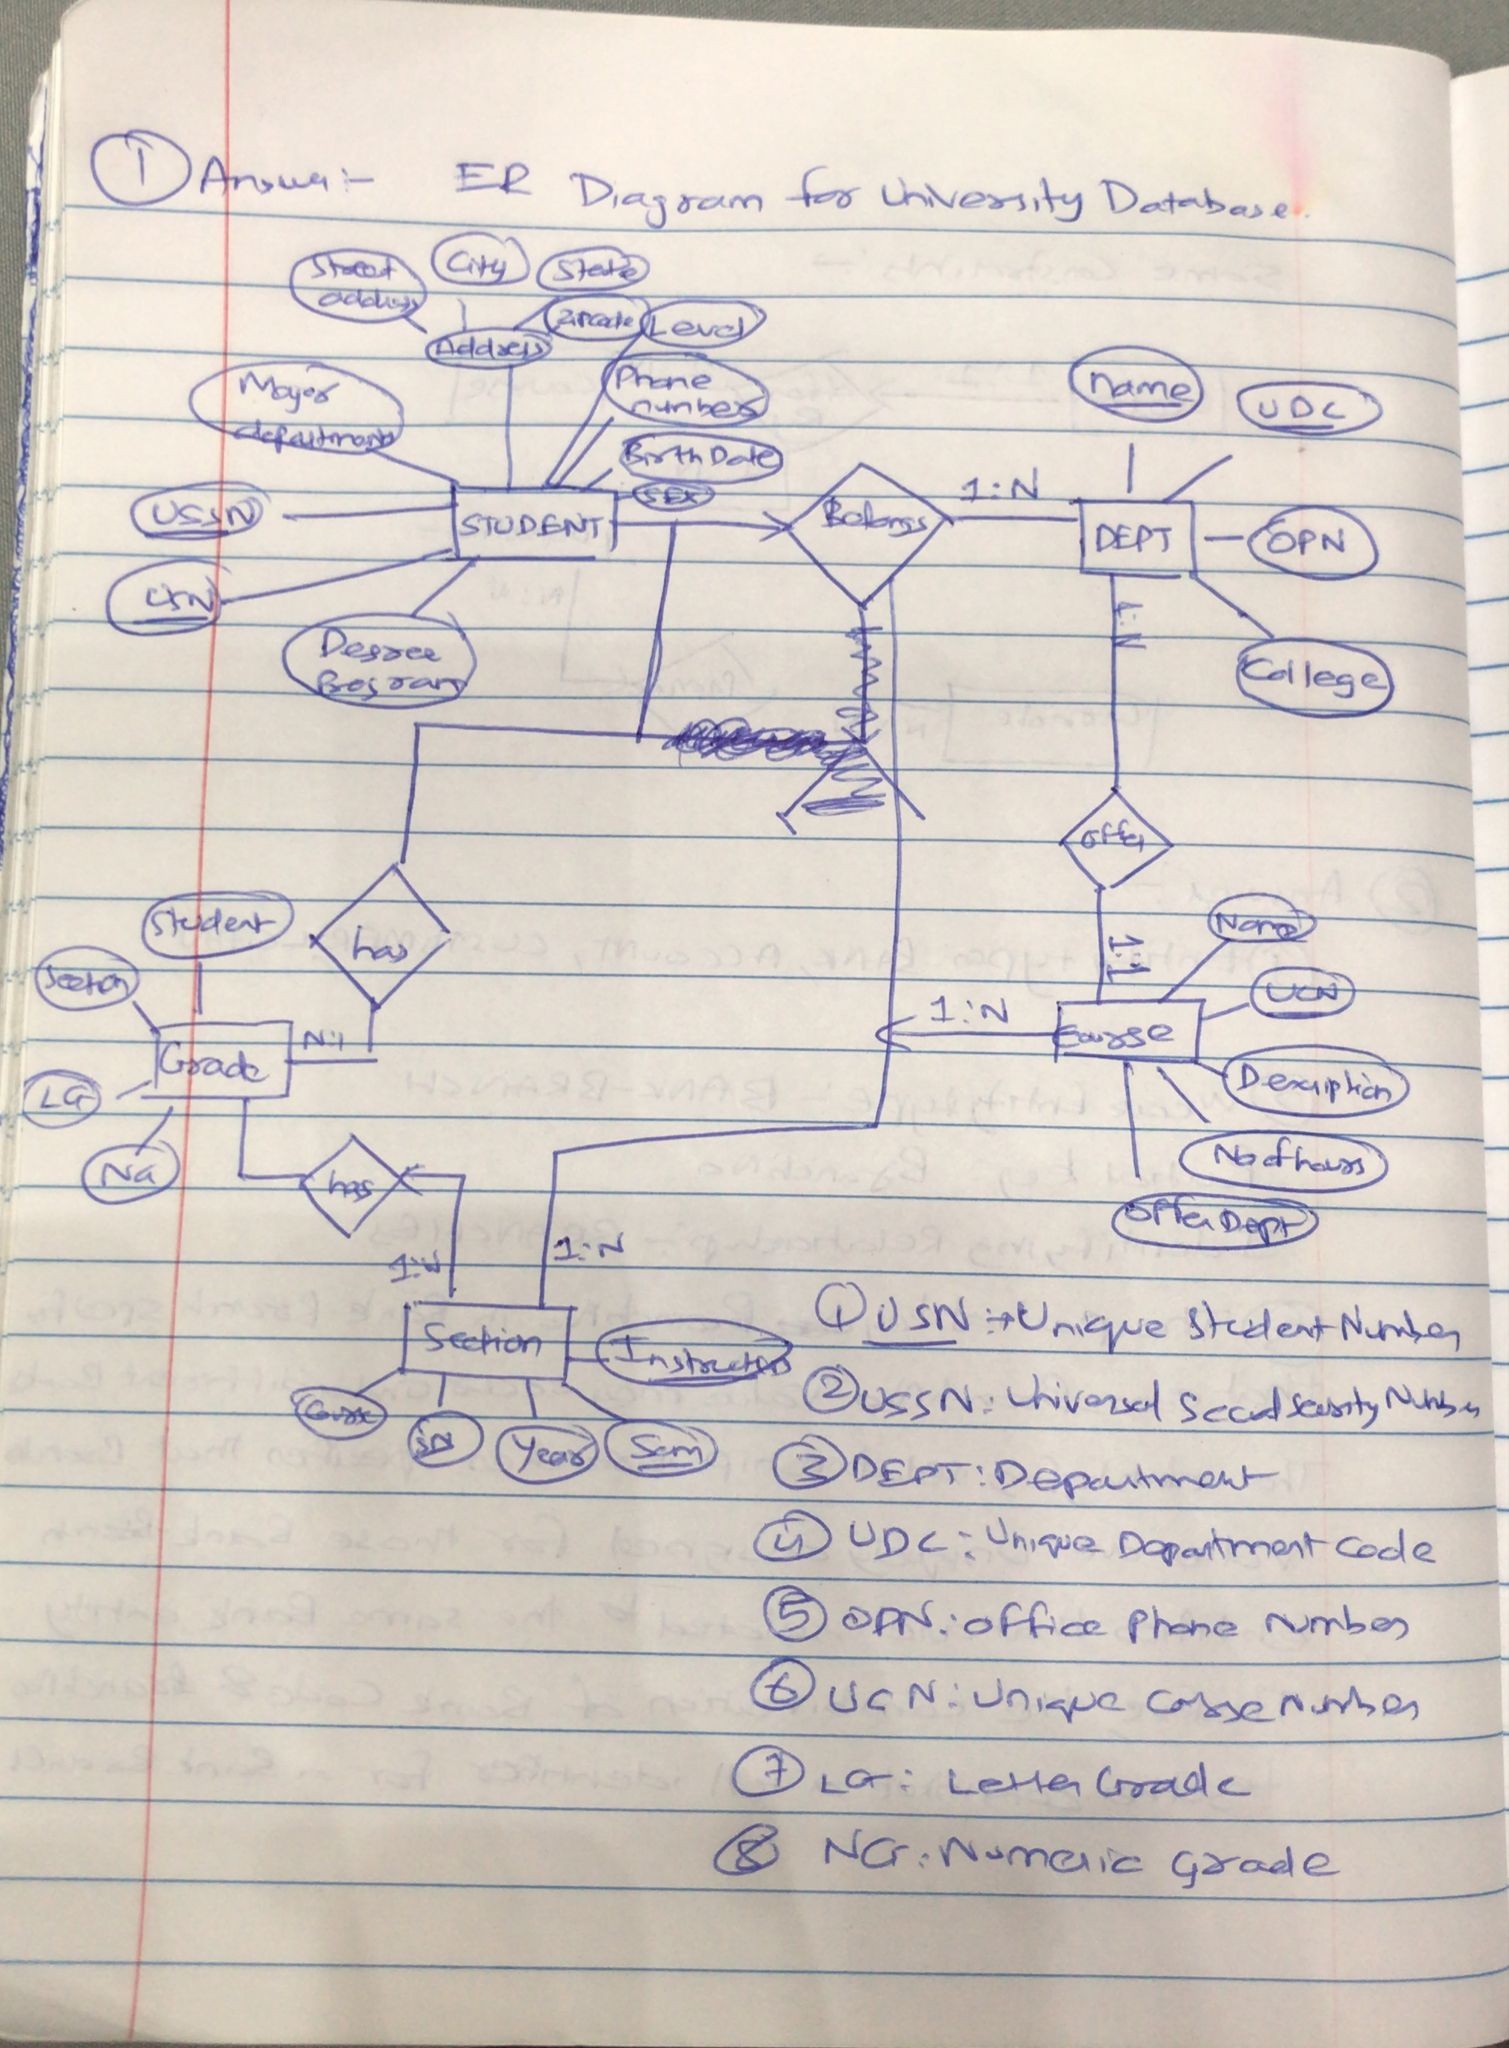 1 Answer:- ER Diagram for University Database.
Street address
City
State
Zipcode
Level
Address
Major department
Phone number
Birth Date
Sex
USSN
USN
STUDENT
Degree Program
Belongs
1:N
Name
UDC
DEPT
OPN
College
1:N
offer
1:1
Name
UCN
Course
1:N
Description
No of hours
Offer Dept
has
Student
Section
Grade
N:1
LG
NG
has
1:N
1:N
Section
Instructor
Course
SN
Year
Sem
1 USN :→ Unique Student Number
2 USSN: Universal Social Security Number
3 DEPT: Department
4 UDC: Unique Department Code
5 OPN: Office Phone Number
6 UCN: Unique Course Number
7 LG: Letter Grade
8 NG: Numeric Grade